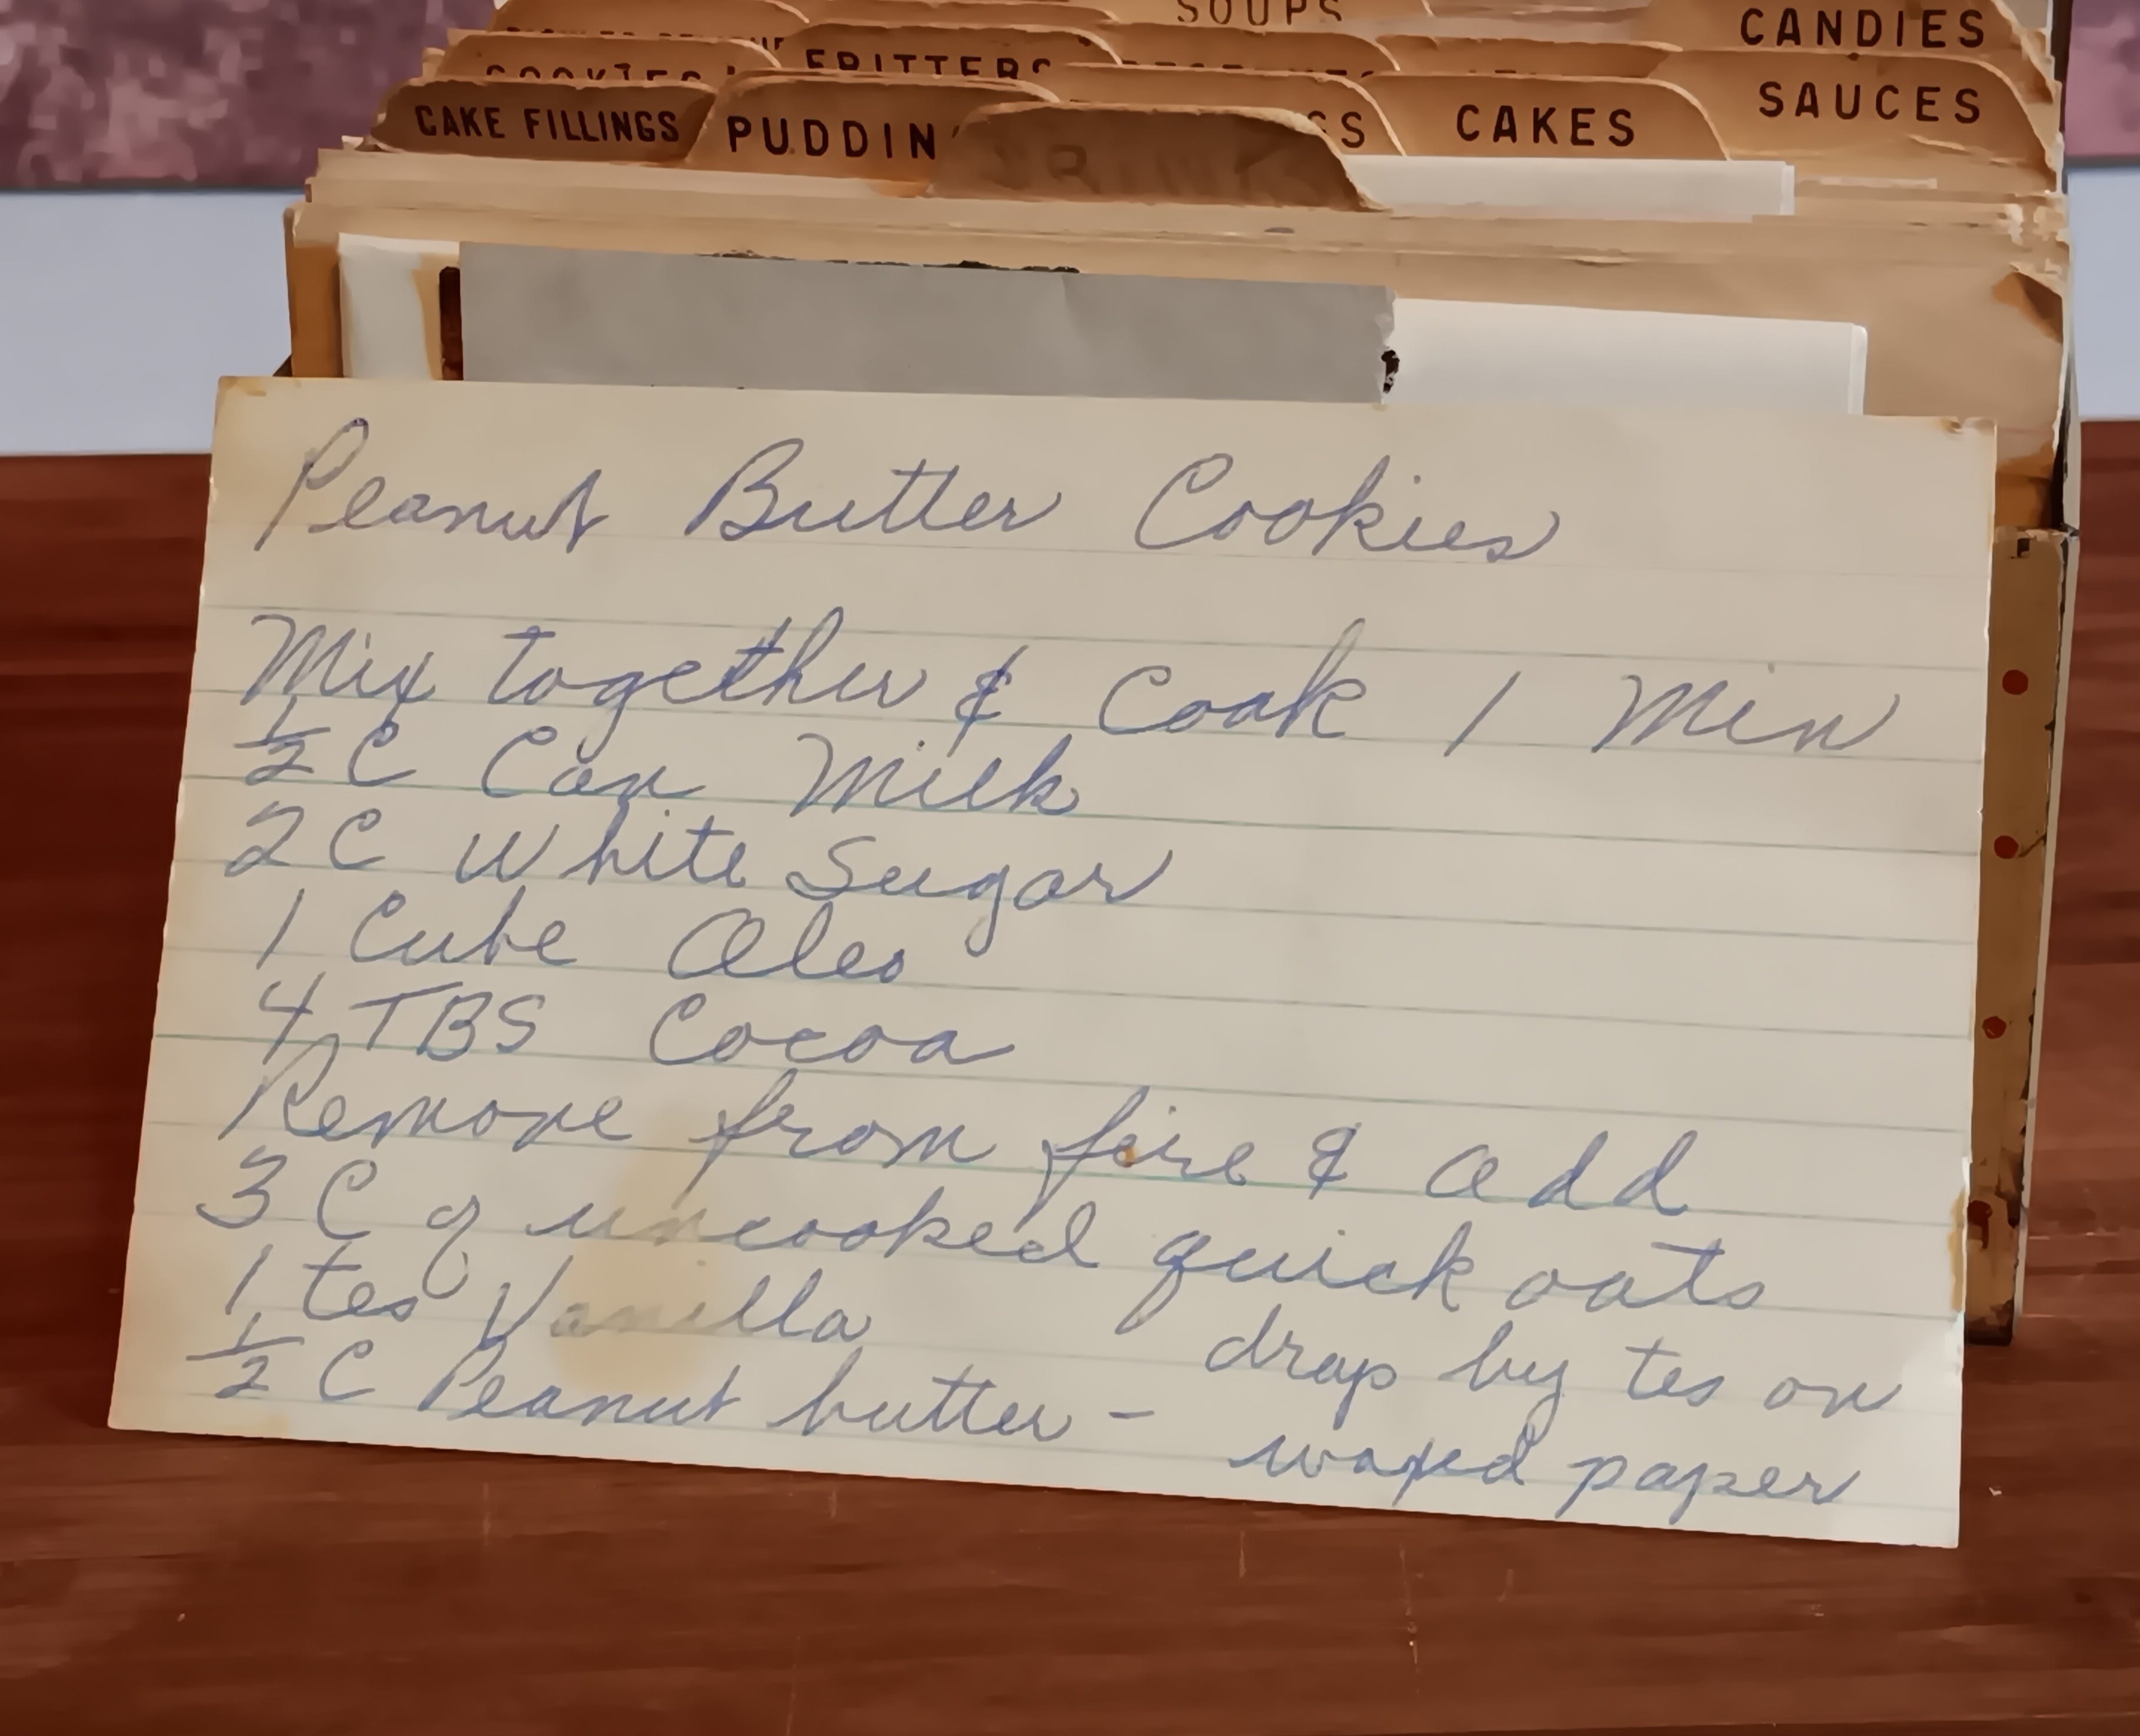 SOUPS
CANDIES
FRITTERS
SAUCES
CAKE FILLINGS
PUDDIN
GS
CAKES
DRINK
Peanut Butter Cookies
Mix together & Cook 1 Min
½ C Can Milk
2 C White Sugar
1 Cube Oleo
4 TBS Cocoa
Remove from fire & add
3 C of uncooked quick oats
1 tes Vanilla
½ C Peanut butter -
drop by tes on
waxed paper